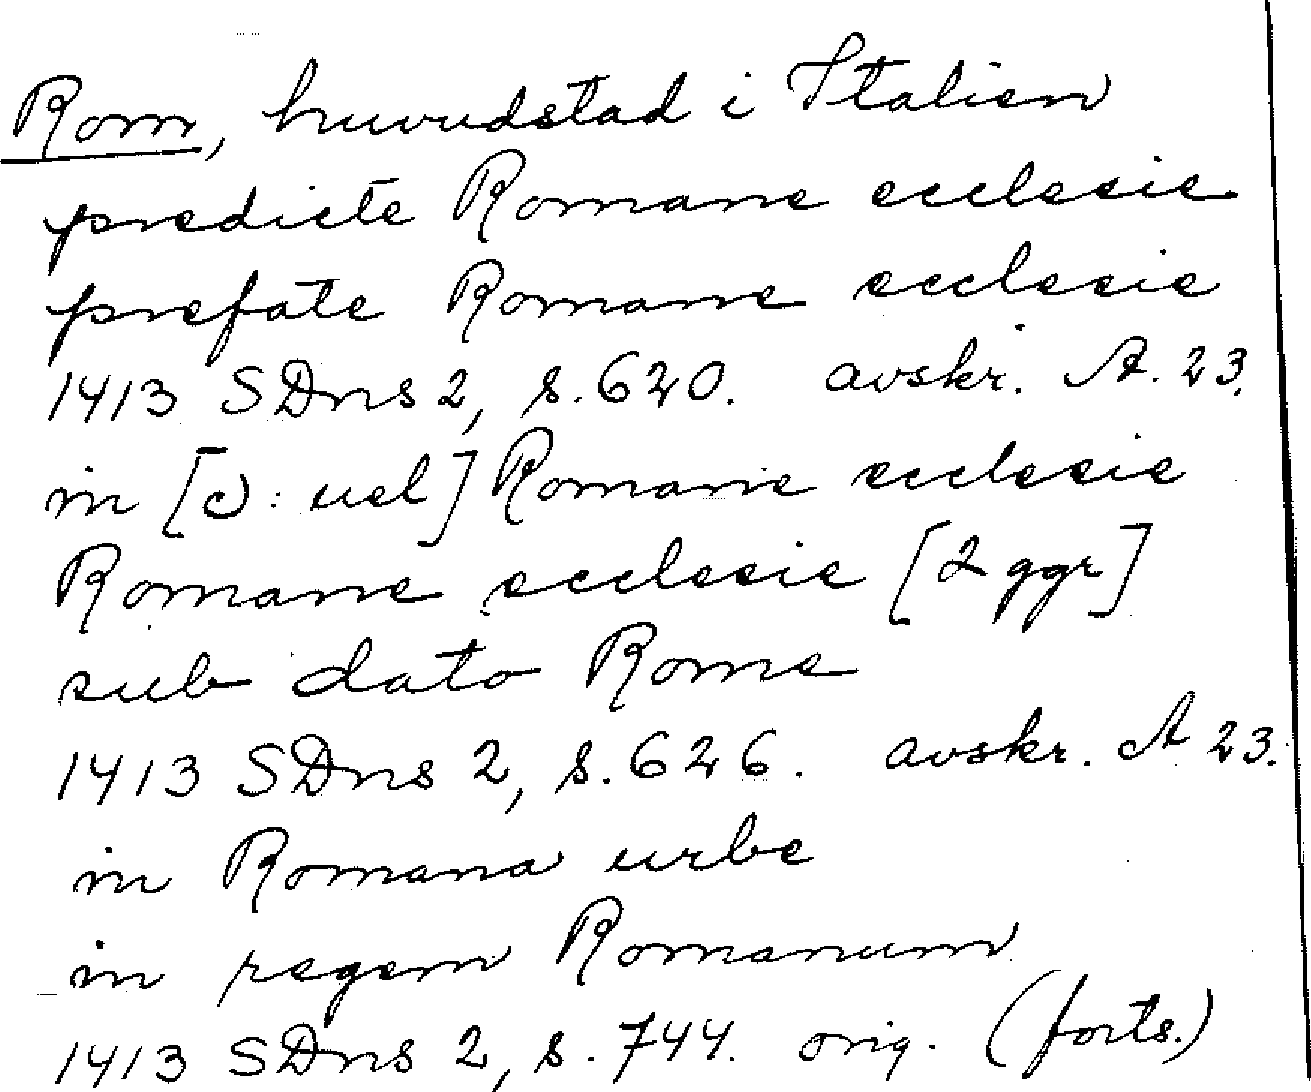 Rom, huvudstad i Italien
predicte Romane ecclesie
prefate Romane ecclesie
1413 SDns 2, s. 620. avskr. A. 23.
in [ɔ: uel] Romane ecclesie
Romane ecclesie [2 ggr]
sub dato Rome
1413 SDns 2, s. 626. avskr. A 23.
in Romana urbe
in regem Romanum
1413 SDns 2, s. 744. orig. (forts.)